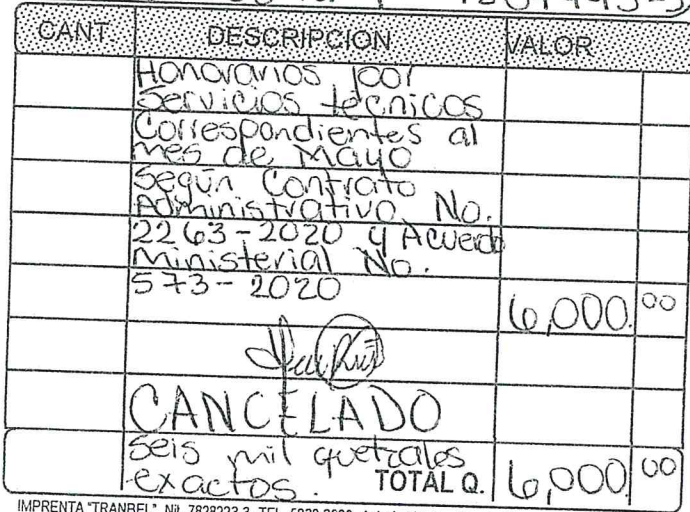 CANT. DESCRIPCION VALOR
Honorarios por
Servicios técnicos
Correspondientes al
mes de Mayo
Según Contrato
Administrativo No.
2263-2020 y Acuerdo
Ministerial No.
573-2020 6,000.00
CANCELADO
Seis mil quetzales
exactos. TOTAL Q. 6,000 00
IMPRENTA "TRANBEL" Nit. 7828223-3